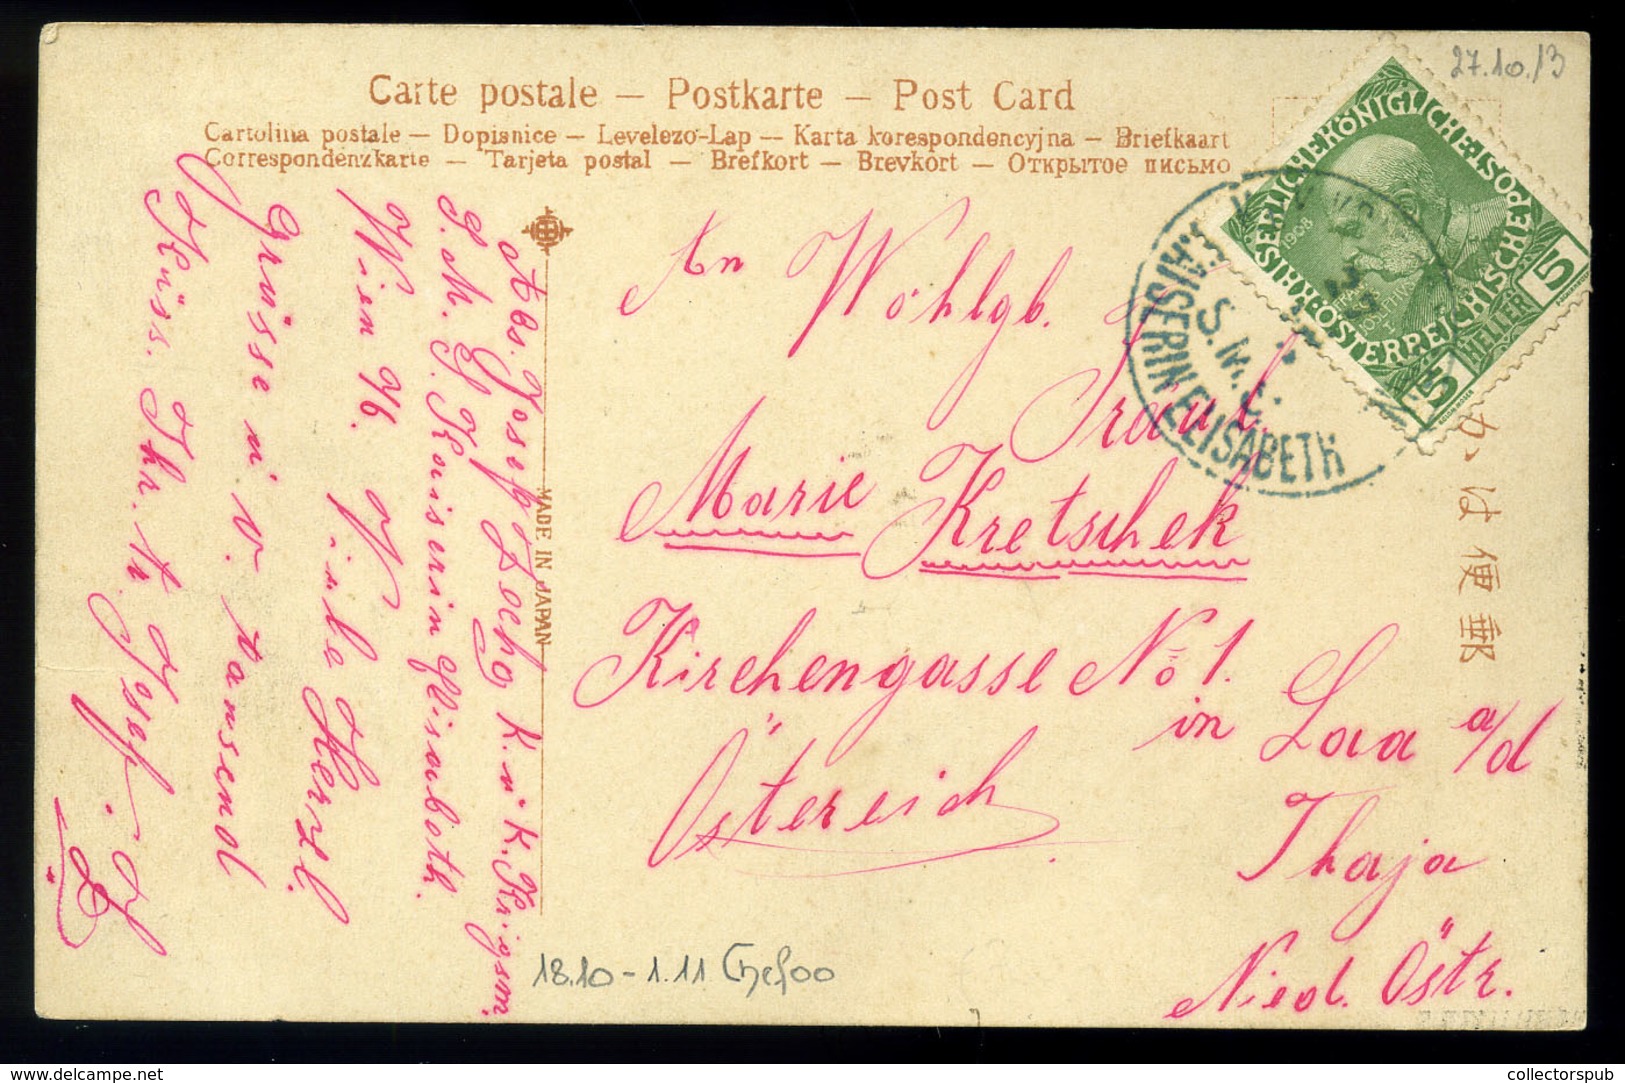 27.10.13
Carte postale — Postkarte — Post Card
Cartolina postale — Dopisnice — Levelezo-Lap — Karta korespondencyjna — Briefkaart
Correspondenzkarte — Tarjeta postal — Brefkort — Brevkort — Открытое письмо
KAISERLICHEKÖNIGLICHE ÖSTERREICHISCHE POST
1908
5 HELLER 5
K.u.K.
S.M.S.
KAISERIN ELISABETH
郵便はか
MADE IN JAPAN
An Wohlgb.
Fräul.
Marie Kretschek
Kirchengasse No 1.
in Laa a/d
Östereich
Thaja
Nied. Östr.
Abs. Josef K. u K. Krigsm.
S.M. S. Kaiserin Elisabeth.
Wien 76.
Viele Herzl.
Grüsse u v. tausend
Küss. Ihr. Josef.
18.10 - 1.11 Chefoo
delcampe.net
collectorspub